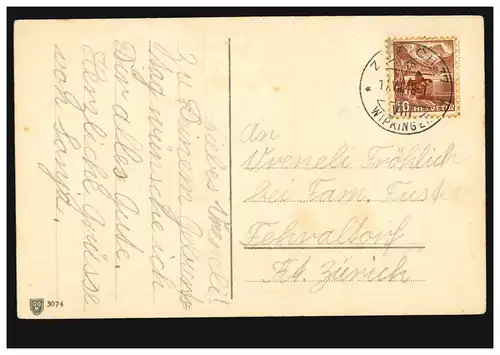 liebes Vreneli!
Zu Deinem Geburts-
tag wünsche ich
Dir alles Gute.
Herzliche Grüsse
von
An
Vreneli Fröhlich
bei Fam.
Fehraltorf
Kt. Zürich
WIPKINGEN
10 HELVETIA
3074